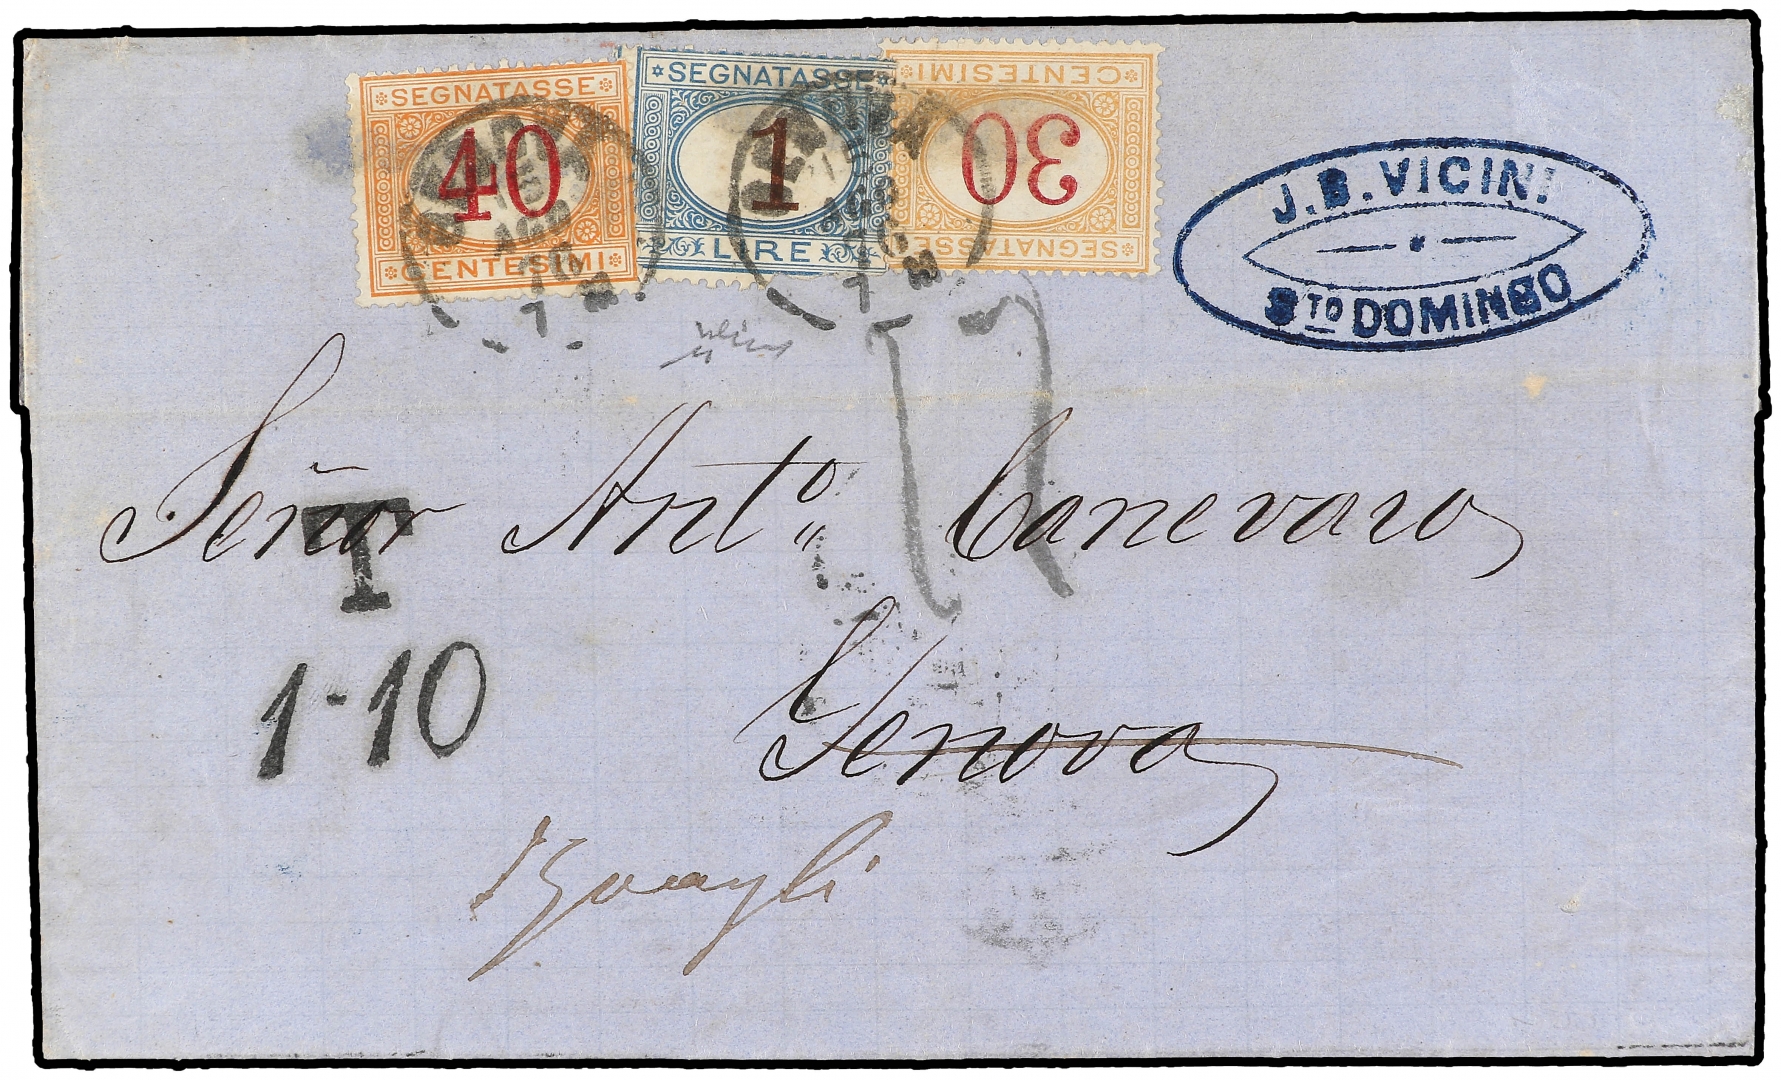 SEGNATASSE
40
CENTESIMI
SEGNATASSE
1
LIRE
CENTESIMI
30
SEGNATASSE
J. B. VICINI.
STO DOMINGO
Señor Anto. Canevaro
T
1-10
Genova